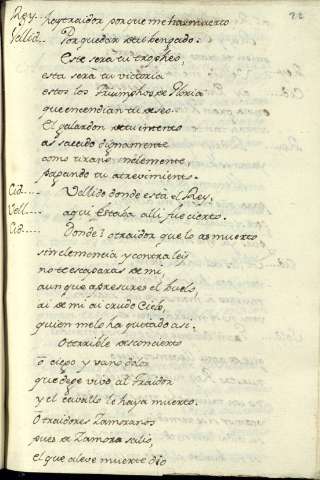 22
Rey.. ha traidor porque me has muerto
Vellid... Por quedar de ti bengado.
Este sera tu tropheo,
esta sera tu victoria
estos los Triumphos de Gloria
que encendian tu deseo.
El galardon de tu intento
as sacado dignamente
como tirano inclemente,
pagando tu atrevimiento.
Cid.... Vellido donde está el Rey.
Vell.... aqui estaba alli fue cierto.
Cid.... Donde? o traidor que lo as muerto
sin clemencia y contra lei
no te escaparas de mi,
aunque apresures el buelo
ai de mi ai crudo Cielo,
quien me lo ha quitado asi.
O terrible desconcierto
ō ciego y vano dolor
que dege vivo al Traidor
y el cavallo le haya muerto.
O traidores Zamoranos
pues de Zamora salio,
el que aleve muerte dio